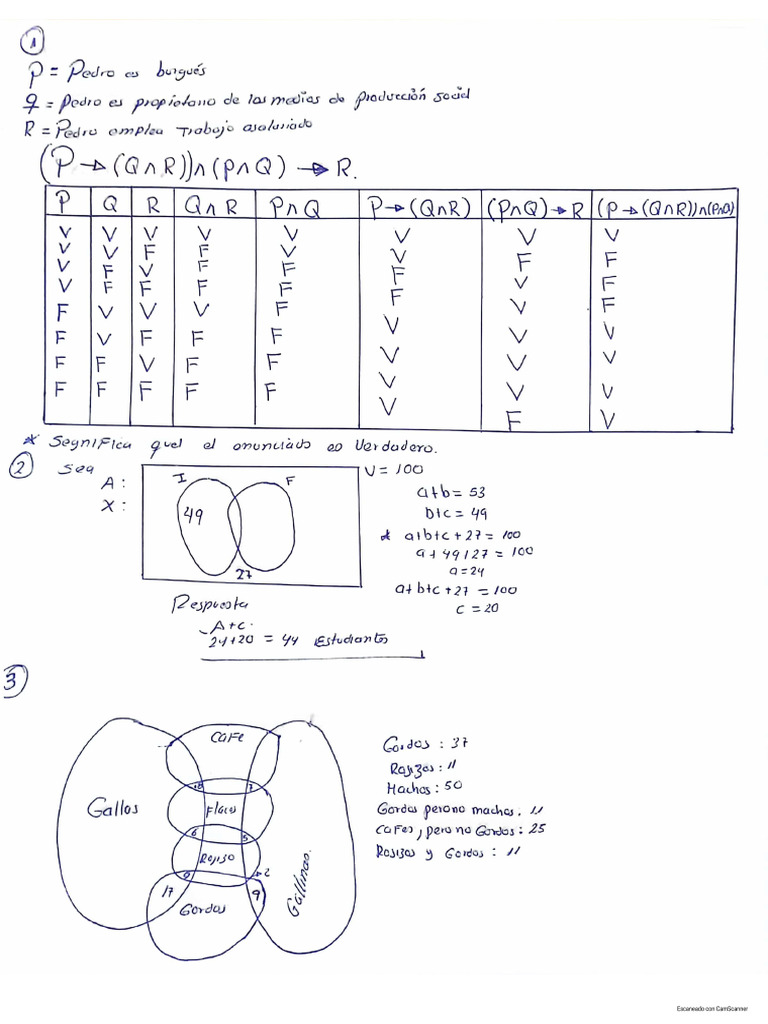 1
P = Pedro es burgués
q = Pedro es propietario de los medios de Producción social
R = Pedro emplea Trabajo asalariado
(P → (Q ∩ R)) ∩ (P ∩ Q) → R.
P Q R Q ∩ R P ∩ Q P → (Q ∩ R) (P ∩ Q) → R (P → (Q ∩ R)) ∩ (P ∩ Q)
V V V V V V V V
V V F F V V F F
V F V F F F V F
V F F F F F V F
F V V V F V V V
F V F F F V V V
F F V F F V V V
F F F F F V F V
* Segnifica quel el enunciado es Verdadero.
2 Sea
A:
X:
I F
49
27
U = 100
a+b = 53
b+c = 49
* a+b+c+27 = 100
a + 49+27 = 100
a = 24
a+b+c+27 = 100
c = 20
Respuesta
- A+c.
24+20 = 44 Estudiantes
3
CaFe
Gallos
Flacos
6 5
Rojiso
17 9
Gordos
Gallinas.
Gordos : 37
Rojizos : 11
Machos : 50
Gordos pero no machos : 11
CaFes, pero no Gordos : 25
Rojizos y Gordos : 11
Escaneado con CamScanner